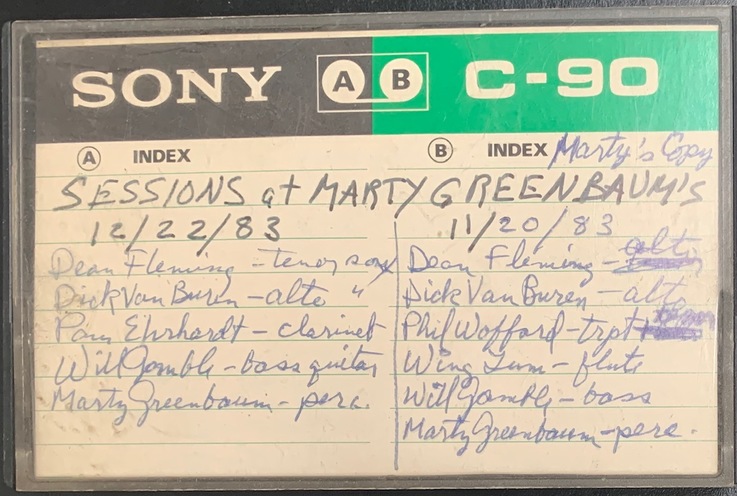 SONY A B C-90
A INDEX
B INDEX Marty's Copy
SESSIONS at MARTY GREENBAUM'S
12/22/83
Dean Fleming - tenor sax
Dick Van Buren - alto "
Paul Ehrhardt - clarinet
Will Gamble - bass guitar
Marty Greenbaum - perc.
11/20/83
Dean Fleming - alto
Dick Van Buren - alto
Phil Wofford - trpt +
Wing Lum - flute
Will Gamble - bass
Marty Greenbaum - perc.